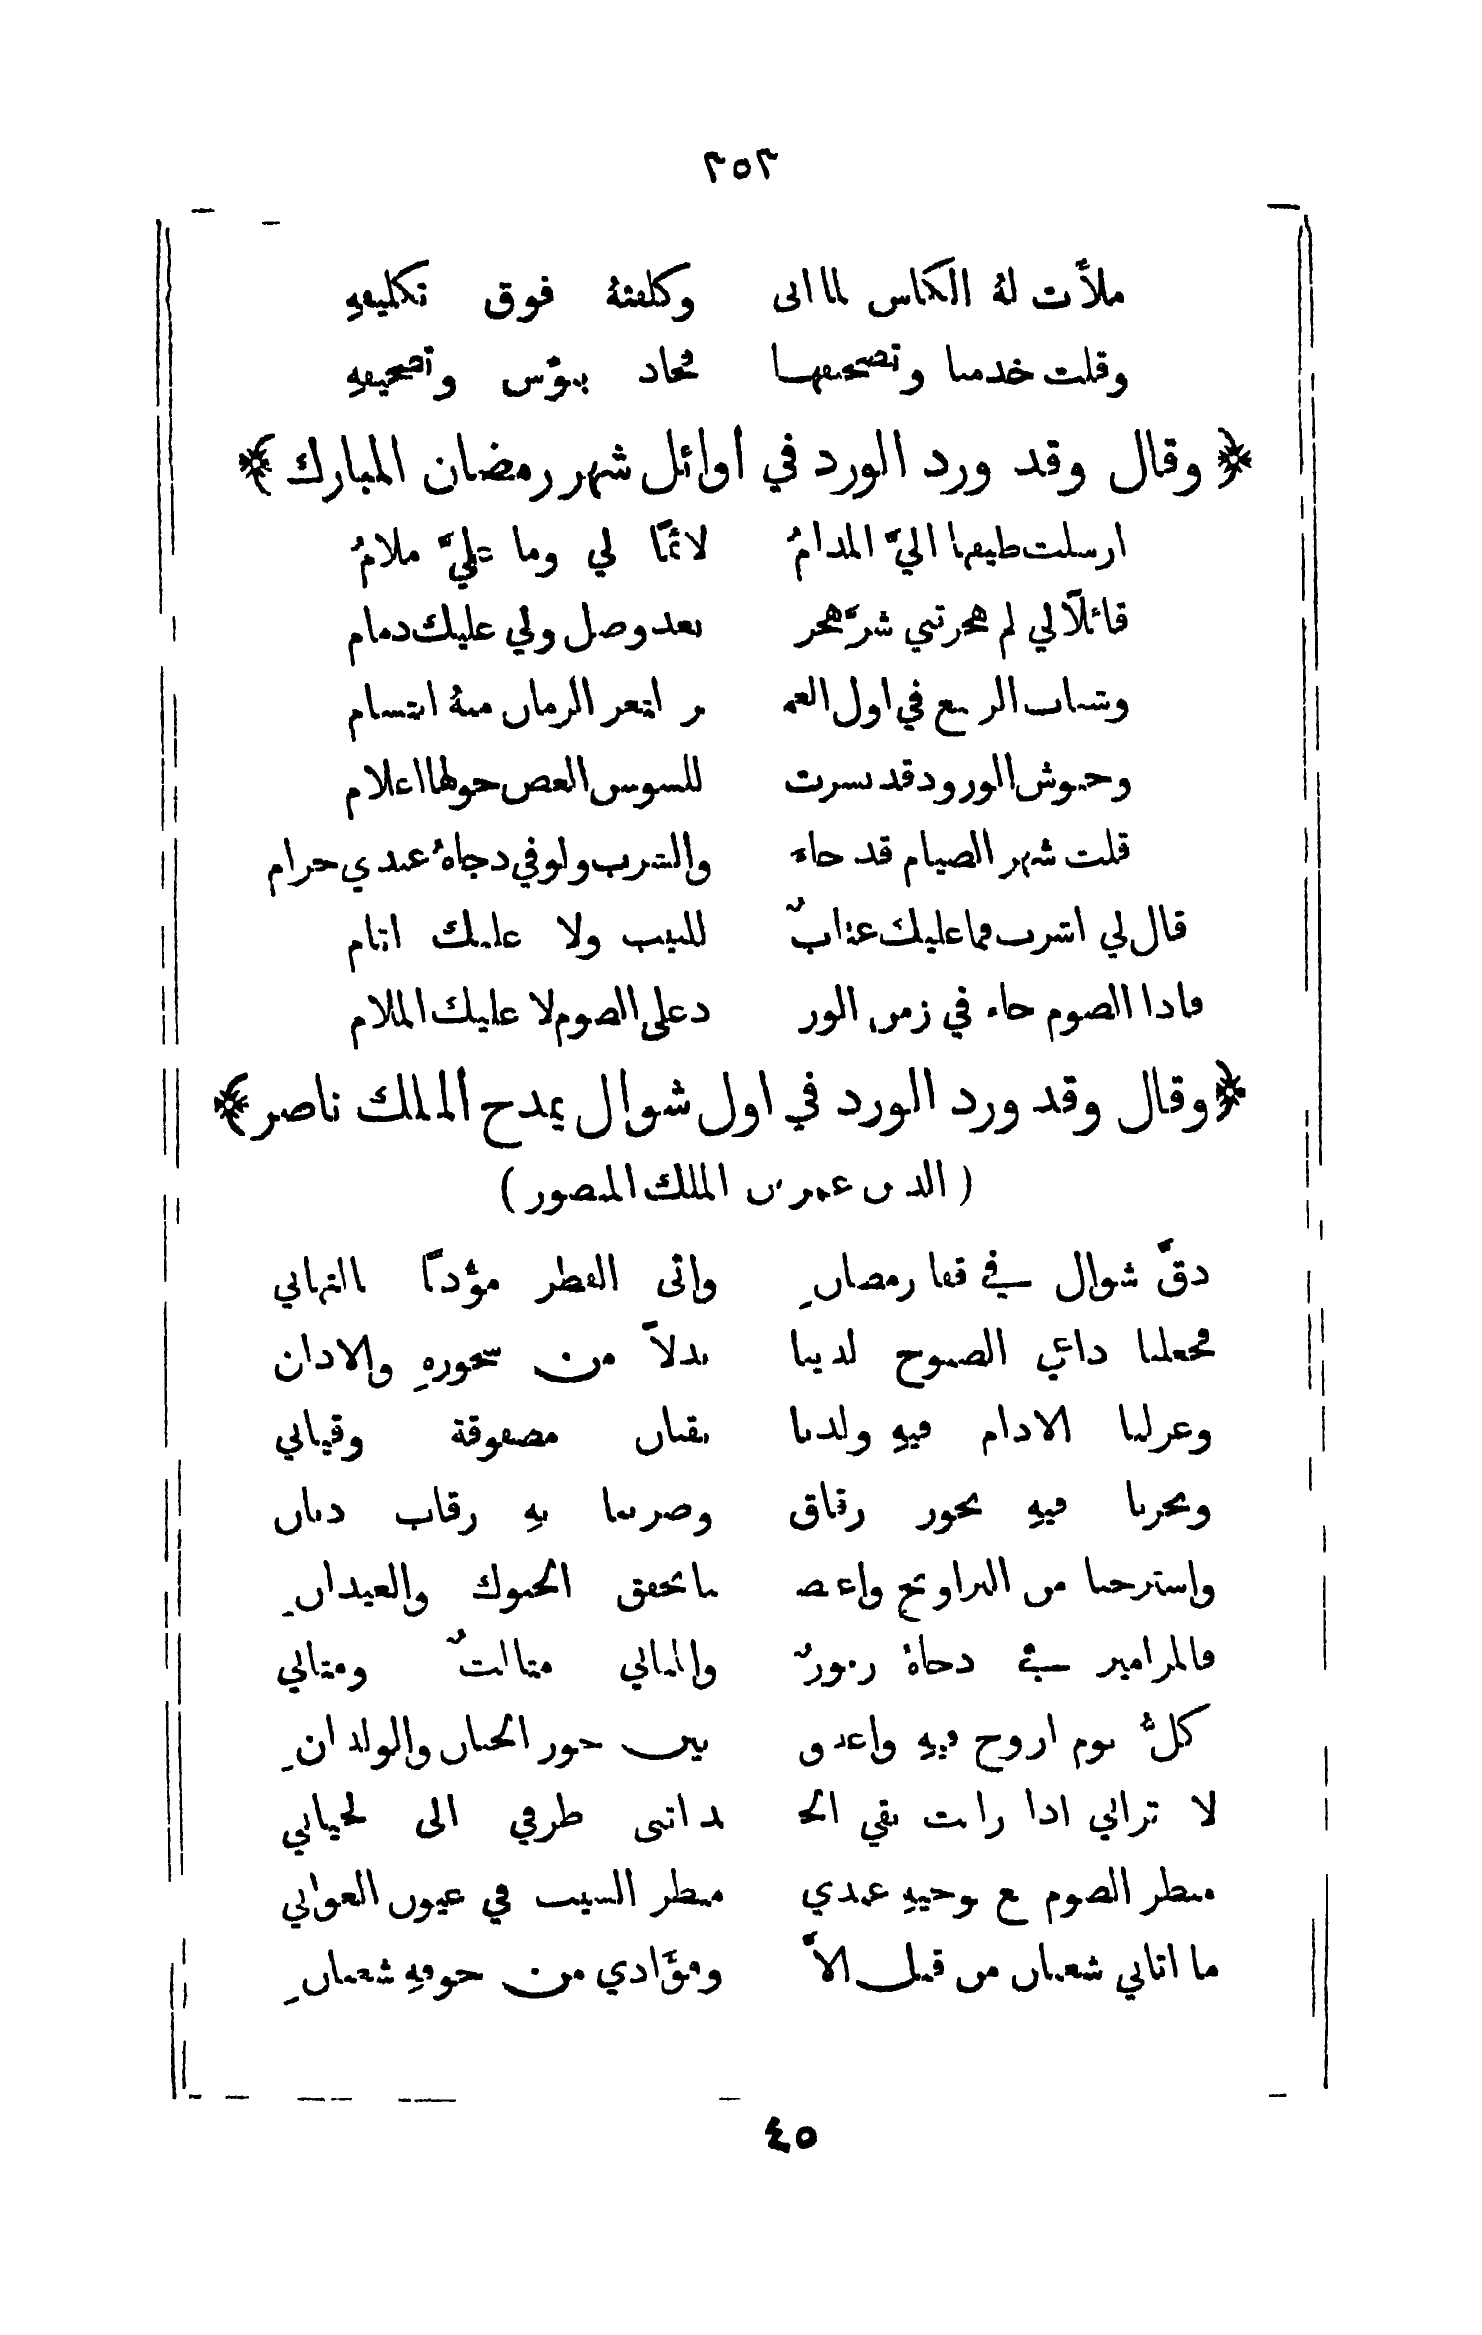 ٣٥٣
ملأت لهُ الكاس لما اتى وكلفتهُ فوق تكليفهِ
وقلت خدمنا وتصحيفها فجاد ببؤس وتصحيفهِ
﴿ وقال وقد ورد الورد في اوائل شهر رمضان المبارك ﴾
ارسلت طيفها اليَّ المدامُ لائمًا لي وما عليَّ ملامُ
قائلًا لي لم هجرتني شرَّ هجر بعد وصل ولي عليك ذمام
وشباب الربيع في اول العمـ ـر لثغر الزمان منهُ ابتسام
وجيوش الورود قد نشرت للسوسن الغض حولها اعلام
قلت شهر الصيام قد جاءَ والشرب ولو في دجاهُ عندي حرام
قال لي اشرب فما عليك عتابٌ للبيب ولا عليك اثام
فاذا الصوم جاء في زمن الور د على الصوم لا عليك الملام
﴿ وقال وقد ورد الورد في اول شوال يمدح الملك ناصر ﴾
( الدين عمر بن الملك المنصور )
دقَّ شوال في قفا رمضانِ واتى الفطر مؤذنًا بالتهاني
فجعلنا داعي الصبوح لدينا بدلاً من سحورهِ والاذان
وعزلنا الادام فيهِ ولذنا بقنان مصفوفة وقياني
ونحرنا فيهِ نحور زقاق وضربنا بهِ رقاب دنان
واسترحنا من التراويح واعتضـ ـنا بخفق الجنوك والعيدانِ
فالمزامير في دجاهُ زبورٌ والمثاني مثالثٌ ومثاني
كلُّ يوم اروح فيهِ واغدو بين حور الجنان والولدانِ
لا تراني اذا رايت نقي الخـ ـد اثني طرفي الى لحياني
منظر الصوم مع توخيهِ عندي منظر الشيب في عيون الغواني
ما اتاني شعبان من قبل الاَّ وفؤادي من خوفهِ شعبانِ
٤٥